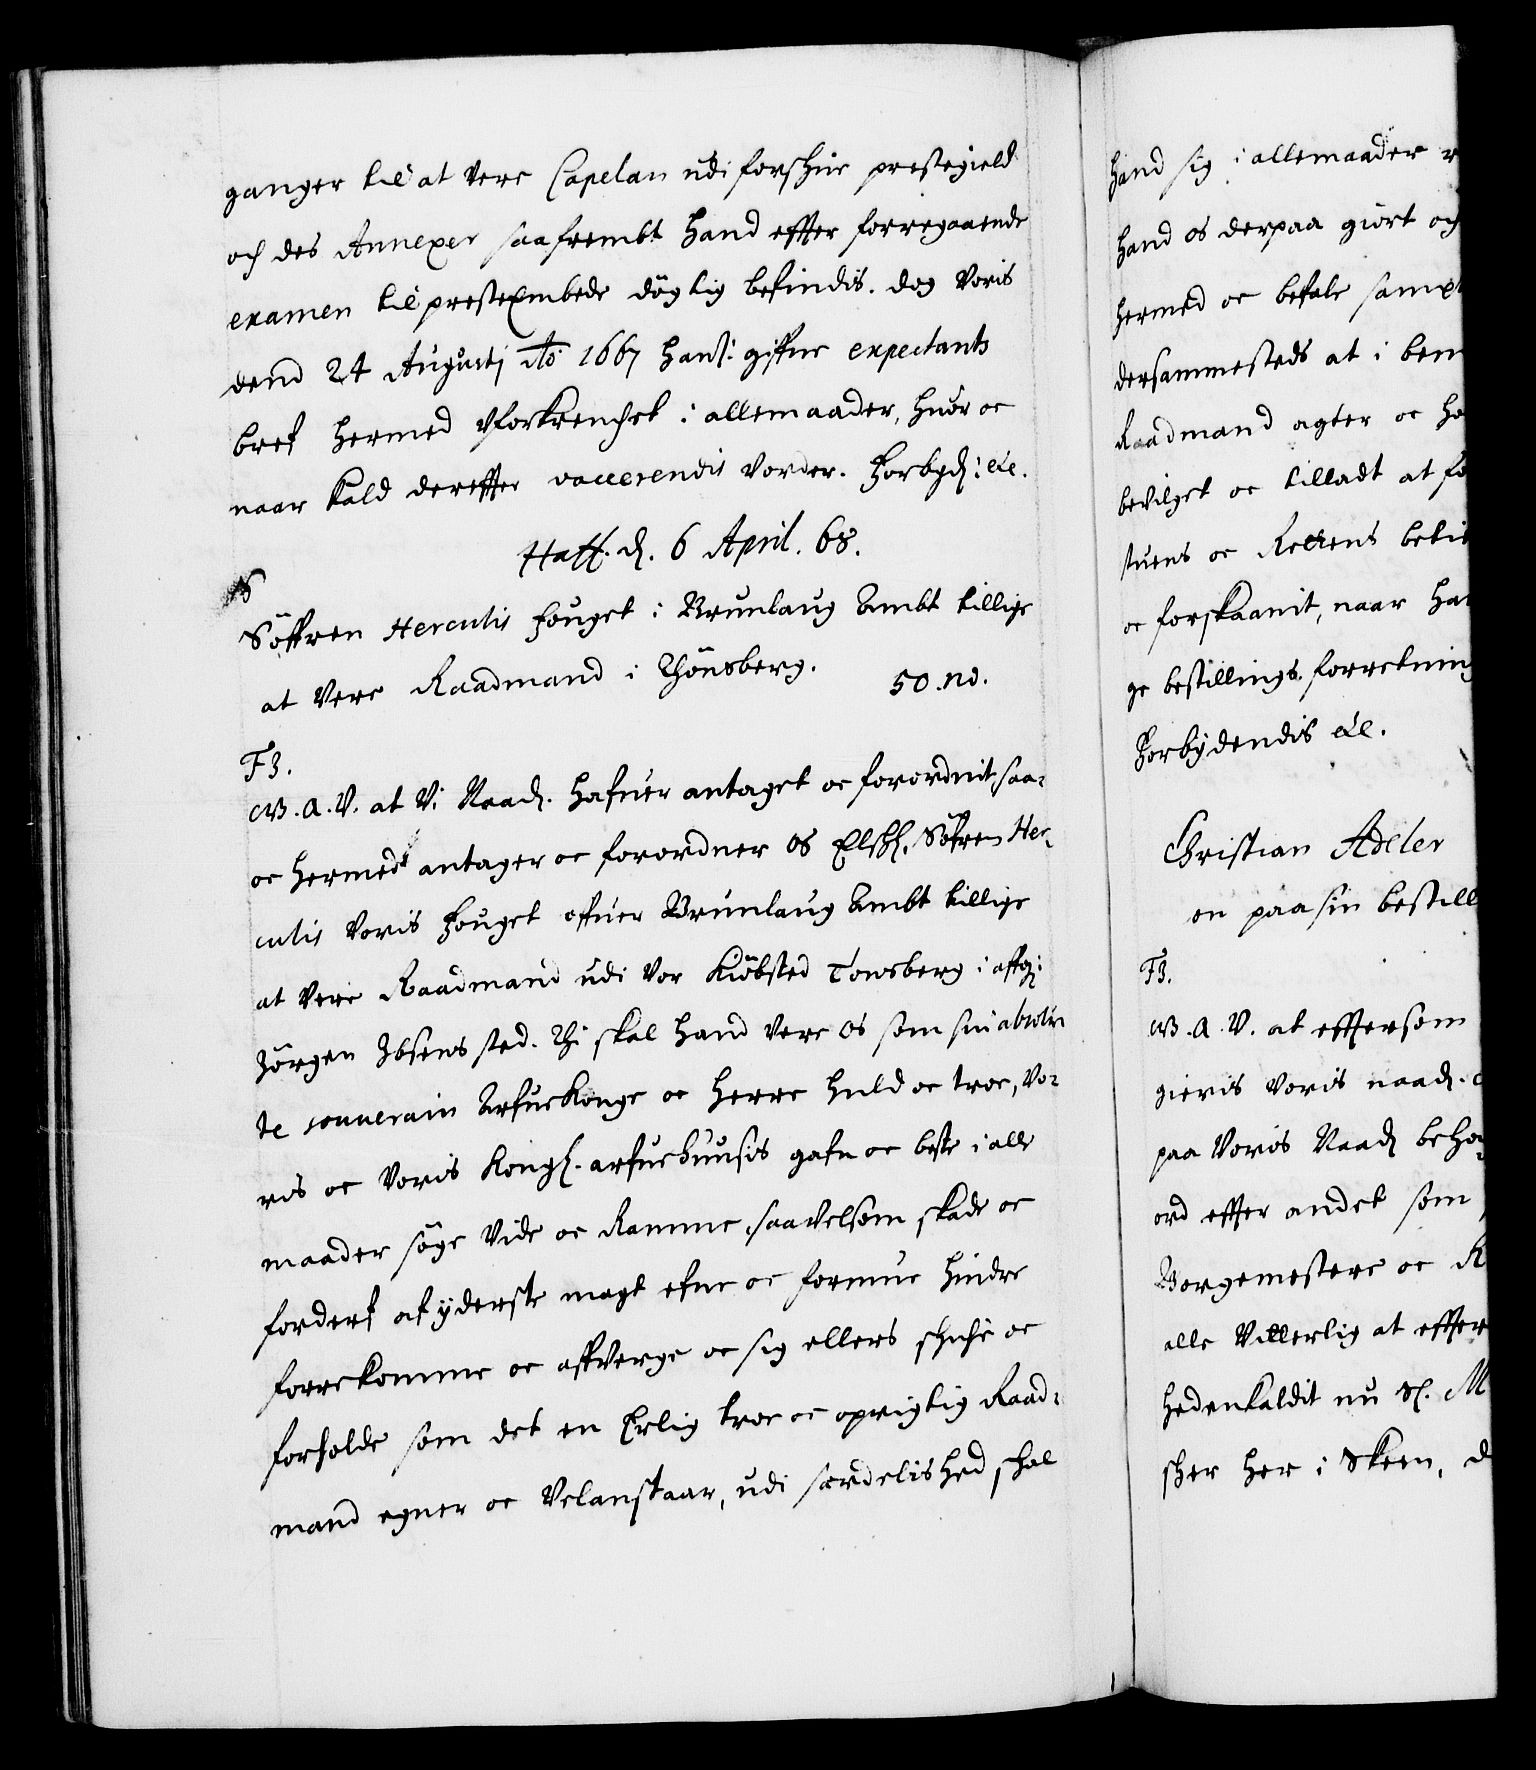 ganger til at Vere Capelan udi forschre prestegield
och des Annexer saafrembt hand effter forregaaende
examen til prestEmbede dögtig befindis. dog Voris
dend 24 Augusti Ao 1667 hans: giffne expectants
bref hermed Uforkrenchet i allemaader, huor oc
naar kald dereffter vaccerendis vorder. Forbyd: etc.
Haff. d. 6 April. 68.
Söffren Herculis fouget i Brunlaug Ambt tillige
at Vere Raadmand i Thönsberg.
50. no.
F3.
W. A. V. at Vi Naad. hafuer antaget oc forordnit, saa-
oc hermed antager oc forordner os Elskl. Söfren Her-
culis Voris fouget ofuer Brunlaug Ambt tillige
at Vere Raadmand udi Vor Kiöbsted Tonsberg i affg:
Jörgen Ibsens sted. Thi skal hand Vere os som sin absolu-
te souuerain Arfuekonge oc Herre huld oc troe, Vo-
ris oc Voris Kongl. arfuehuusis gafn oc beste i alle
maader söge Vide oc Ramme, saavelsom skade oc
forderf af yderste magt efne oc formue hindre
forrekomme oc affverge oc sig ellers schiche oc
forholde som det en Erlig troe oc oprigtig Raad-
mand egner oc Velanstaar, udi serdelished schal
hand sig i allemaader
hand os derpaa giort og
hermed oc befale sampt
dersammesteds at i bem
Raadmand agter oc ho
bevilget oc tilladt at
stuens oc Rettens beti
oc forskaanit, naar ha
ge bestillings forretning
Forbydendis etc.
Christian Adeler
en paa sin bestill
F3.
W. A. V. at effterson
gieris Voris naad.
paa Voris Naad beha-
ord effter andet som
Borgemestere oc R
alle Vitterlig at effter
hedenkaldit nu Sl. M
scher her i Skeen, d